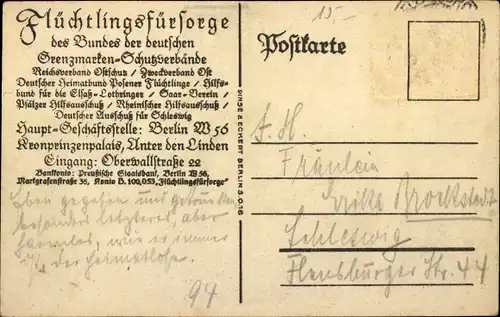 Flüchtlingsfürsorge
des Bundes der deutschen
Grenzmarken-Schutzverbände
Reichsverband Ostschutz / Zweckverband Ost
Deutscher Heimatbund Posener Flüchtlinge / Hilfs-
bund für die Elsaß-Lothringer / Saar-Verein /
Pfälzer Hilfsausschuß / Rheinischer Hilfsausschuß /
Deutscher Ausschuß für Schleswig
Haupt-Geschäftsstelle: Berlin W 56
Kronprinzenpalais, Unter den Linden
Eingang: Oberwallstraße 22
Bankkonto: Preußische Staatsbank, Berlin W 56,
Markgrafenstraße 38, Konto B. 100,053 „Flüchtlingsfürsorge“
Eben gegessen und getrunken
besonders letzteres, aber
harmlos, wie es immer
der Heimatlose.
94
DINSE & ECKERT BERLIN S.O.16
15,-
Postkarte
Fräulein
Brockstedt
Schleswig
Flensburger Str. 44